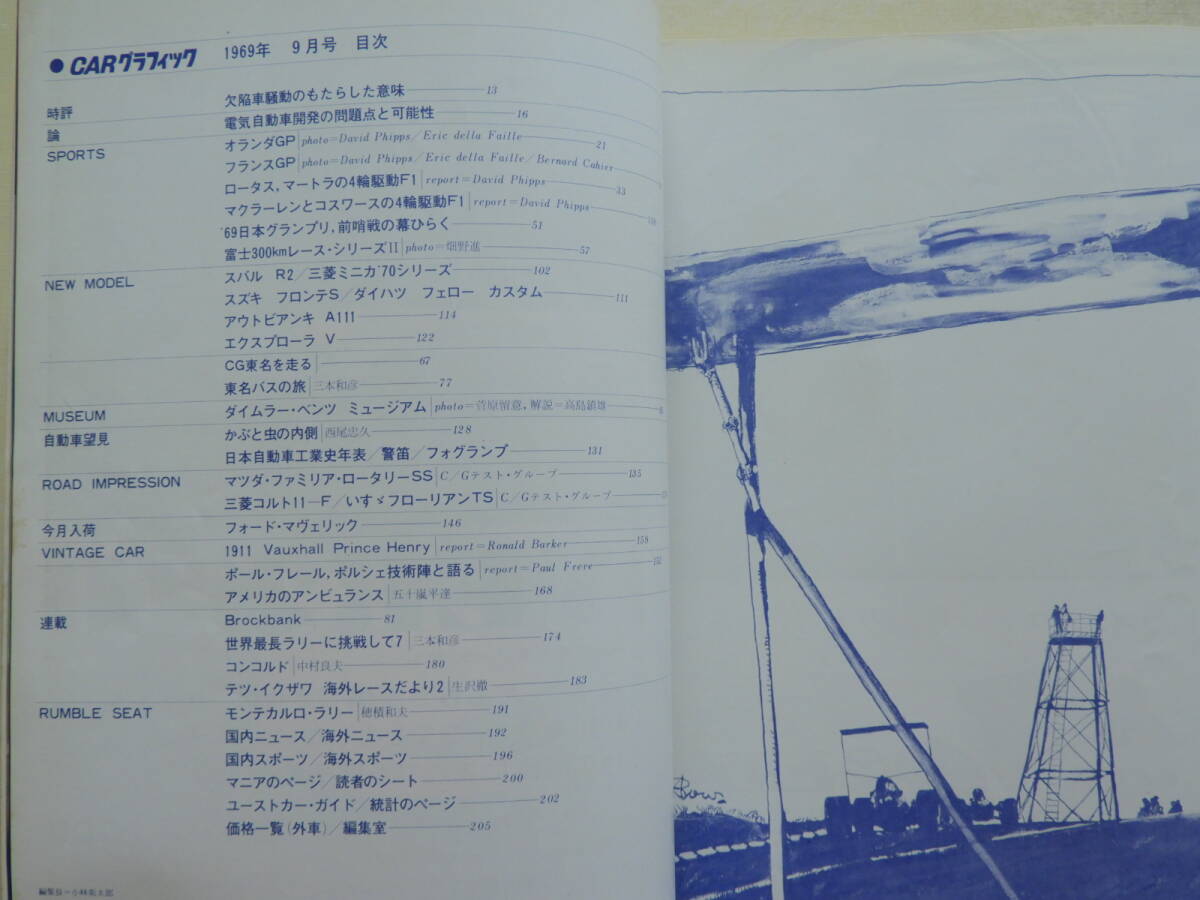 ● CARグラフィック 1969年 9月号 目次
時評 欠陥車騒動のもたらした意味 13
論 電気自動車開発の問題点と可能性 16
SPORTS オランダGP photo=David Phipps/Eric della Faille 21
フランスGP photo=David Phipps/Eric della Faille/Bernard Cahier
ロータス,マートラの4輪駆動F1 report=David Phipps 33
マクラーレンとコスワースの4輪駆動F1 report=David Phipps
'69日本グランプリ,前哨戦の幕ひらく 51
富士300kmレース・シリーズII photo=畑野進 57
NEW MODEL スバル R2/三菱ミニカ'70シリーズ 102
スズキ フロンテS/ダイハツ フェロー カスタム 111
アウトビアンキ A111 114
エクスプローラ V 122
CG東名を走る 67
東名バスの旅 三本和彦 77
MUSEUM ダイムラー・ベンツ ミュージアム photo=菅原留意,解説=高島鎮雄
自動車望見 かぶと虫の内側 西尾忠久 128
日本自動車工業史年表/警笛/フォグランプ 131
ROAD IMPRESSION マツダ・ファミリア・ロータリーSS C/Gテスト・グループ 135
三菱コルト11—F/いすゞフローリアンTS C/Gテスト・グループ
今月入荷 フォード・マヴェリック 146
VINTAGE CAR 1911 Vauxhall Prince Henry report=Ronald Barker 158
ポール・フレール,ポルシェ技術陣と語る report=Paul Frere
アメリカのアンビュランス 五十嵐平達 168
連載 Brockbank 81
世界最長ラリーに挑戦して7 三本和彦 174
コンコルド 中村良夫 180
テツ・イクザワ 海外レースだより2 生沢徹 183
RUMBLE SEAT モンテカルロ・ラリー 穂積和夫 191
国内ニュース/海外ニュース 192
国内スポーツ/海外スポーツ 196
マニアのページ/読者のシート 200
ユーストカー・ガイド/統計のページ 202
価格一覧(外車)/編集室 205
編集長=小林彰太郎